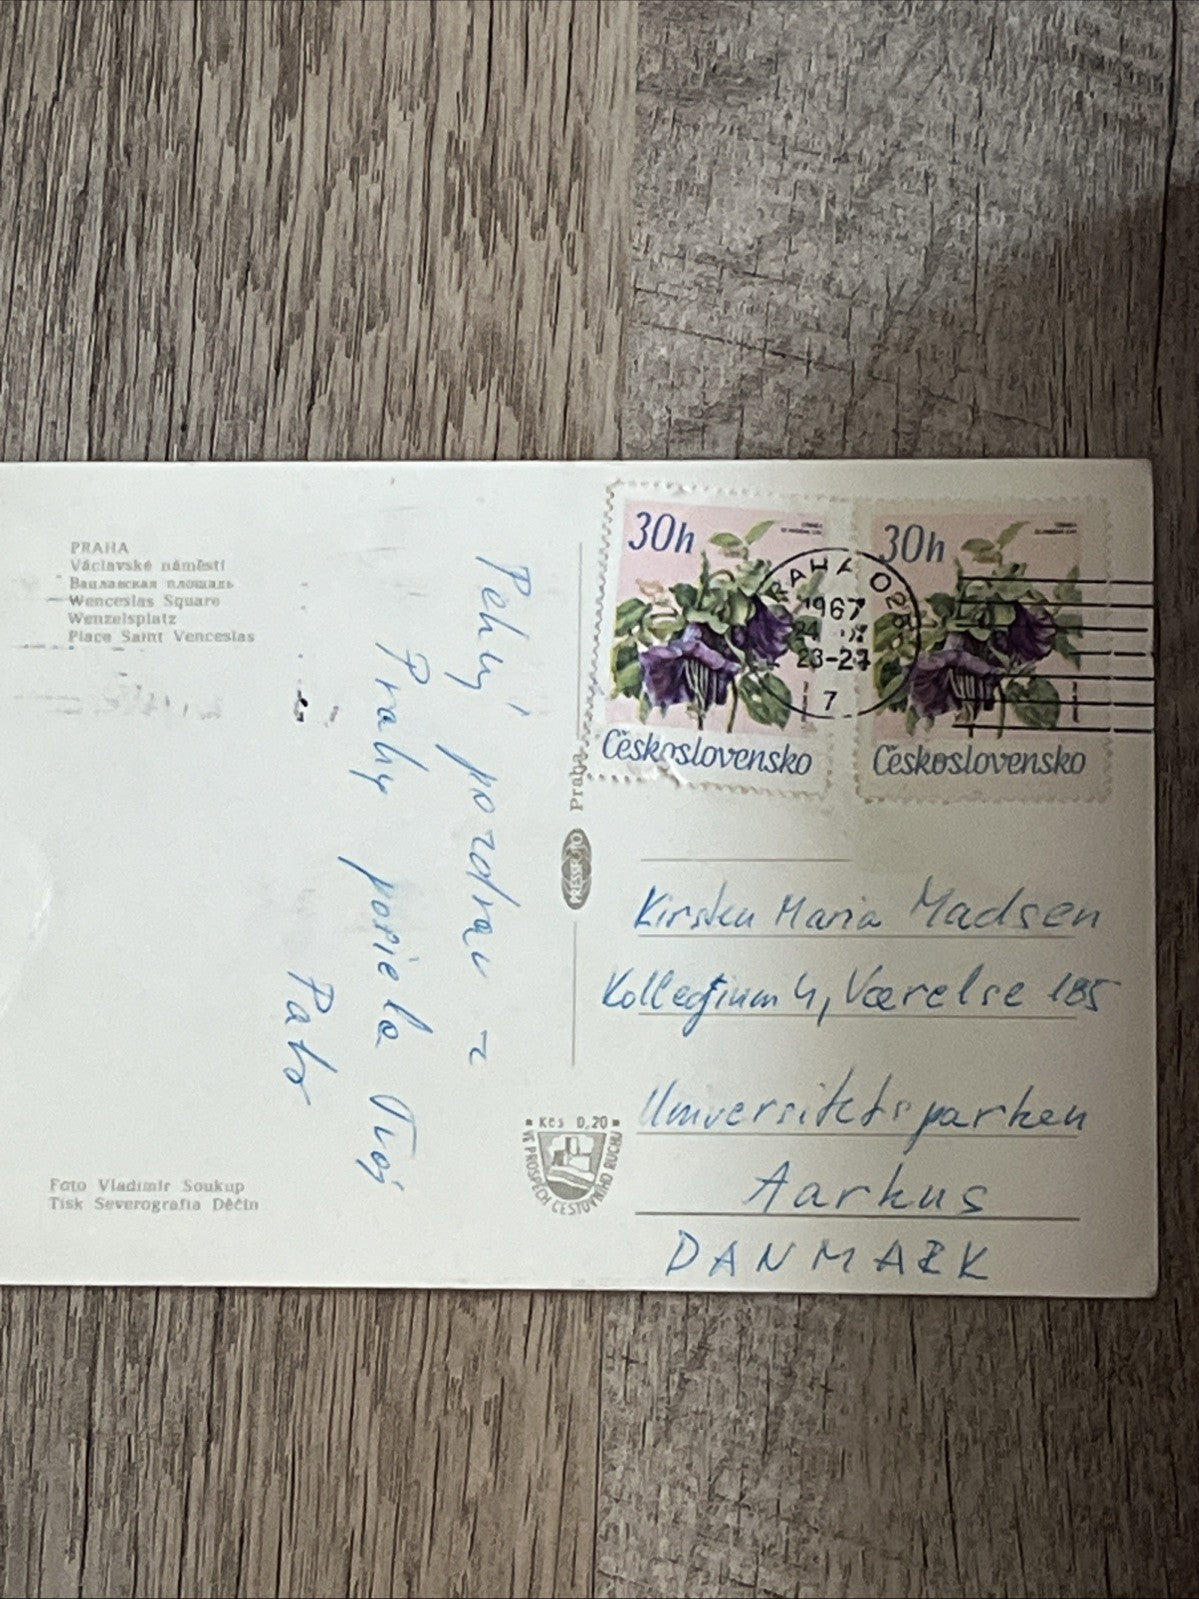 PRAHA
Václavské náměstí
Вацлавская площадь
Wenceslas Square
Wenzelsplatz
Place Saint Venceslas
Pekný pozdrav z
Prahy posiela Tvoj
Palo
Foto Vladimír Soukup
Tisk Severografia Děčín
PRESSFOTO Praha
Kčs 0,20
VE PROSPĚCH CESTOVNÍHO RUCHU
30h
Československo
30h
Československo
PRAHA 028
1967
24
23-24
7
Kirsten Maria Madsen
Kollegium 4, Værelse 185
Universitetsparken
Aarhus
DANMARK